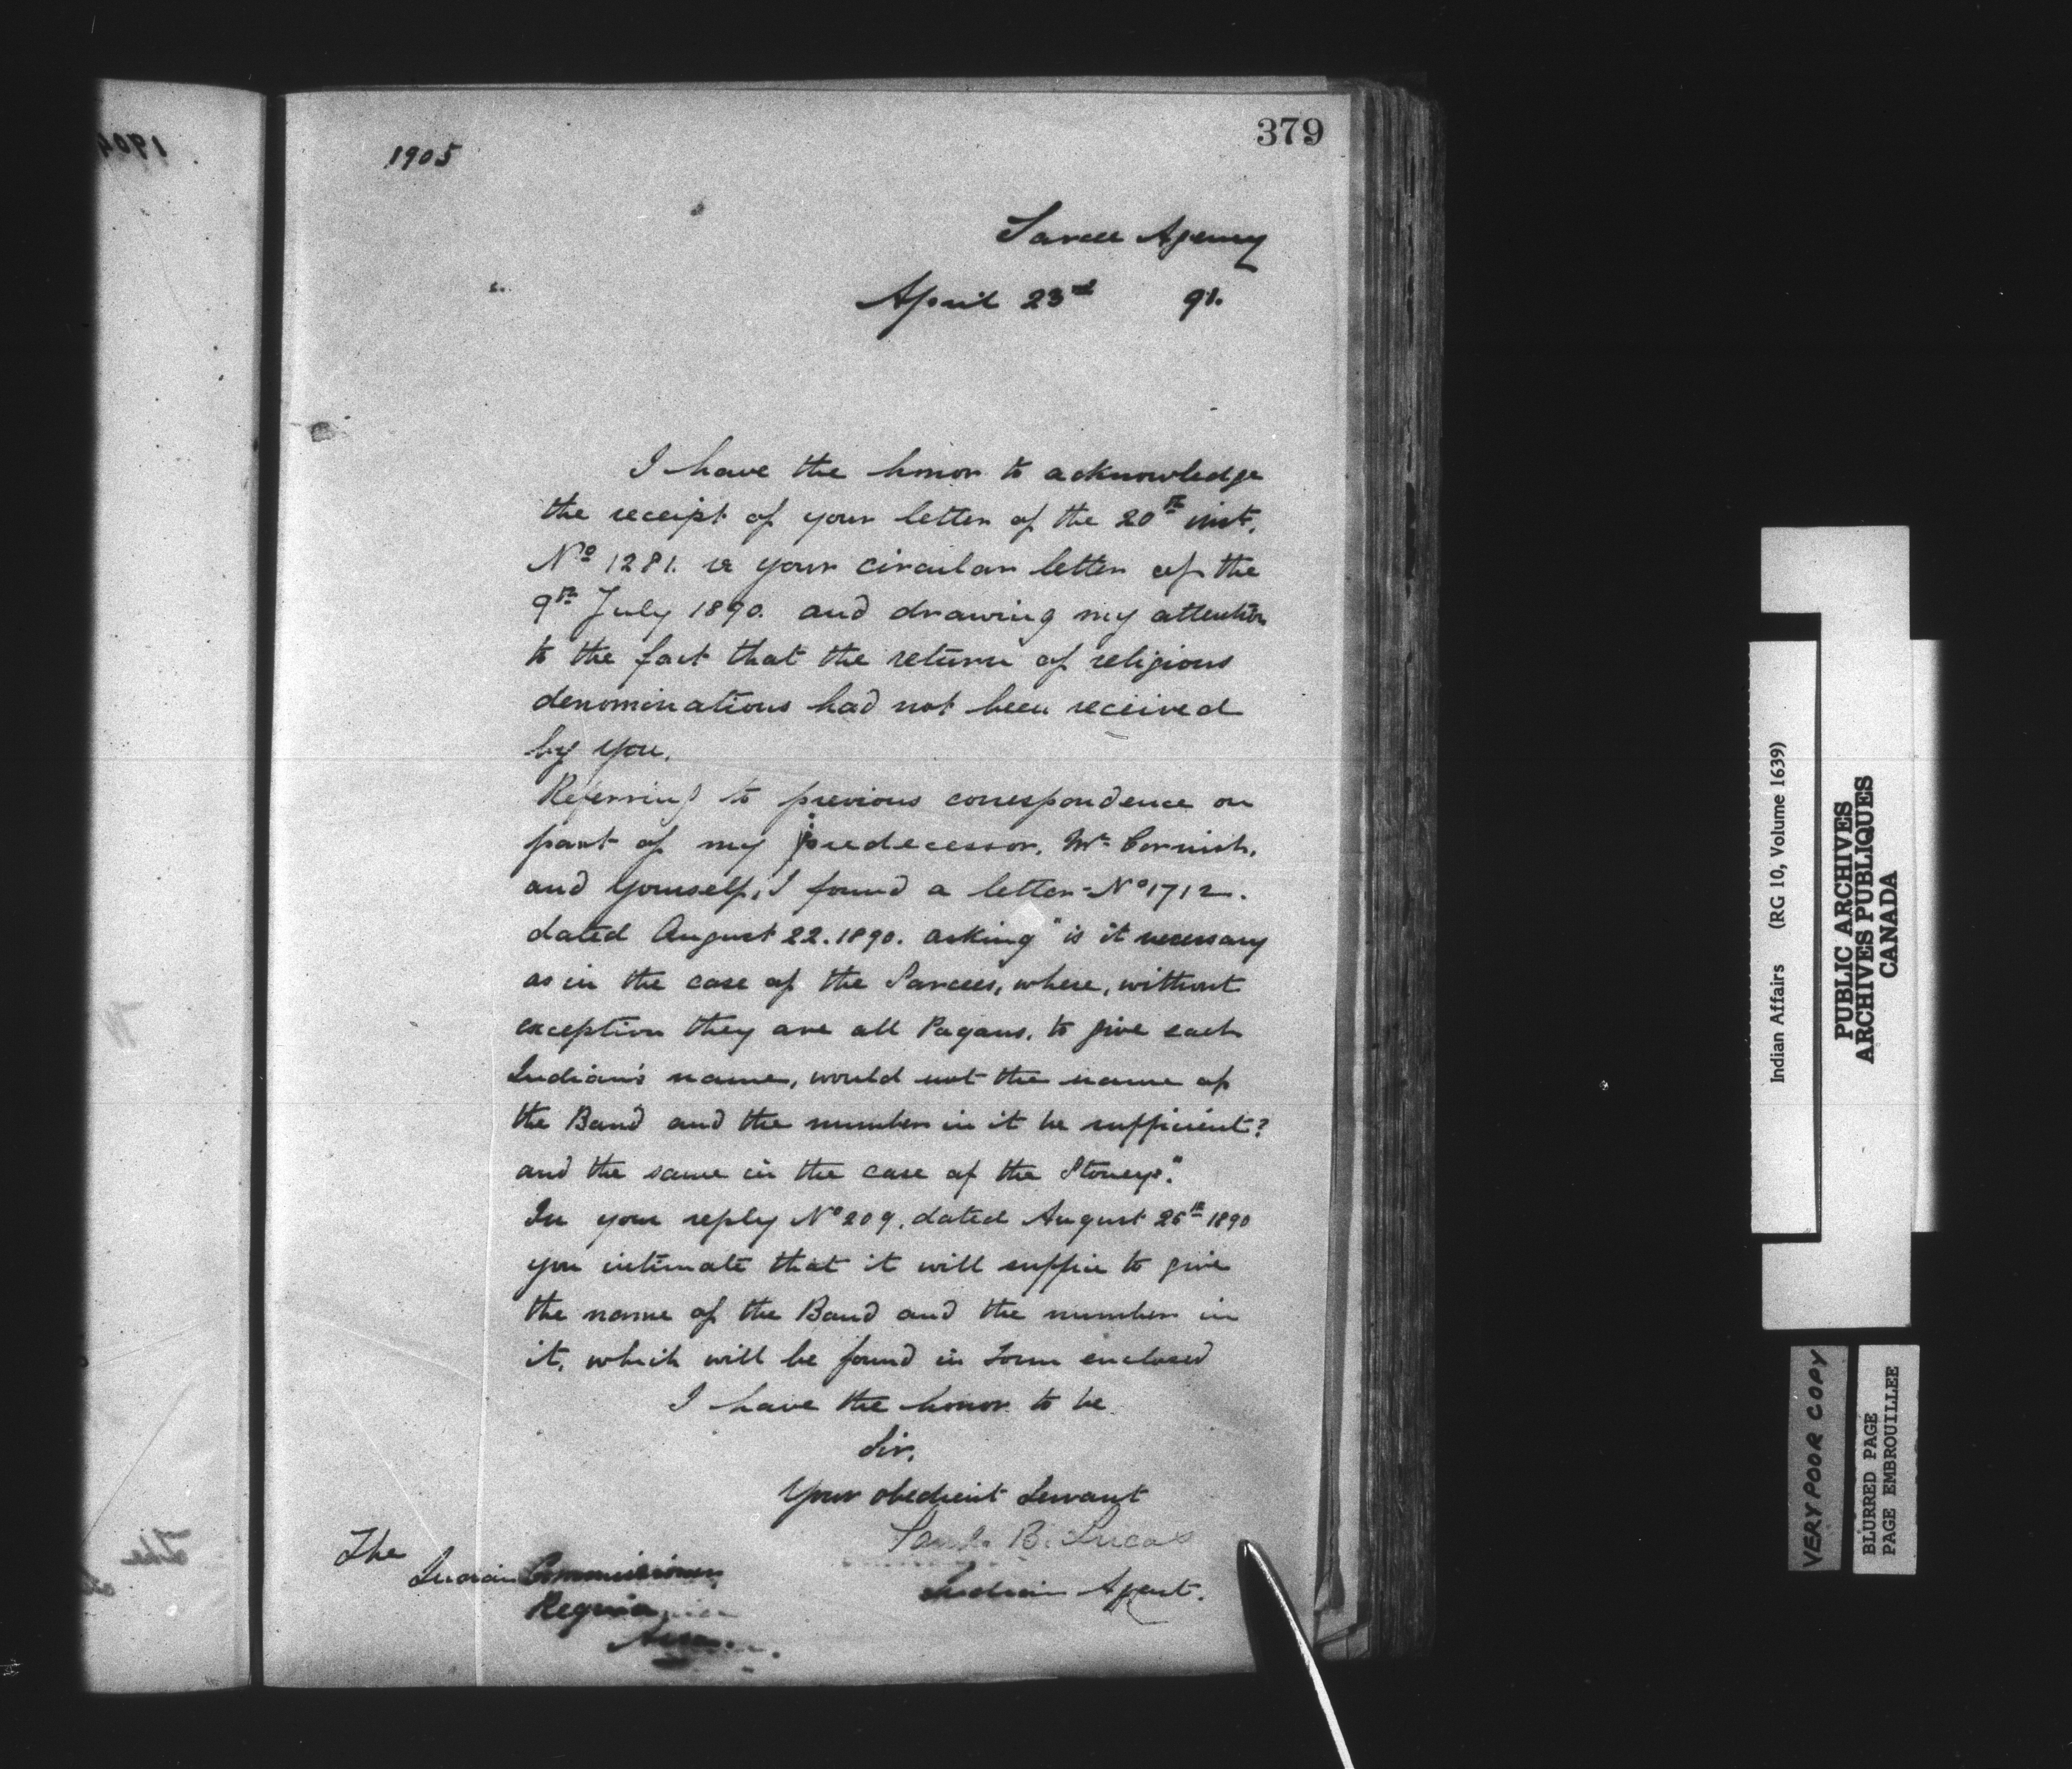 379
1905
Sarcee Agency
April 23rd 91.
I have the honor to acknowledge
the receipt of your letter of the 20th inst.
No 1281. re your circular letter of the
9th July 1890. and drawing my attention
to the fact that the return of religious
denominations had not been received
by you.
Referring to previous correspondence on
part of my predecessor, Mr Cornish,
and yourself, I found a letter No 1712.
dated August 22. 1890. asking "is it necessary
as in the case of the Sarcees, where, without
exception they are all Pagans, to give each
Indian's name, would not the name of
the Band and the number in it be sufficient?
and the same in the case of the Stoneys."
In your reply No 209, dated August 26th 1890
you intimate that it will suffice to give
the name of the Band and the number in
it, which will be found in form enclosed
I have the honor to be
Sir,
Your obedient Servant
B. Lucas
Indian Agent.
The
Indian Commissioner
Regina
Assa.
1904
The
Indian Affairs (RG 10, Volume 1639)
PUBLIC ARCHIVES
ARCHIVES PUBLIQUES
CANADA
VERY POOR COPY
BLURRED PAGE
PAGE EMBROUILLEE